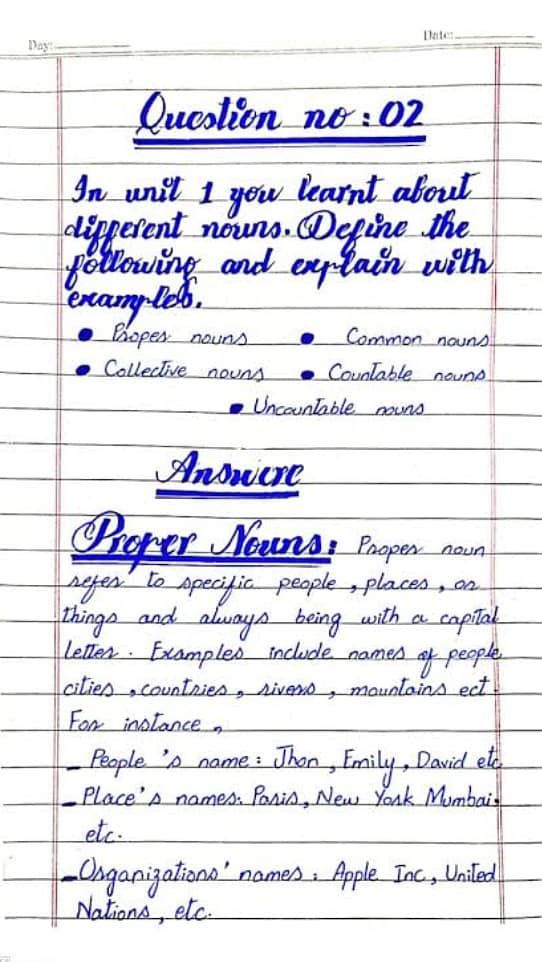 Day:
Date:
Question no : 02
In unit 1 you learnt about
different nouns. Define the
following and explain with
examples.
• Proper nouns • Common nouns
• Collective nouns • Countable nouns
• Uncountable nouns
Answere
Proper Nouns: Proper noun
refer to specific people , places , or
things and always being with a capital
letter . Examples include names of people
cities , countries , rivers , mountains ect .
For instance ,
_ People 's name : Jhon , Emily , David etc
_ Place's names: Paris, New York Mumbai,
etc.
_ Organizations' names : Apple Inc, United
Nations , etc.